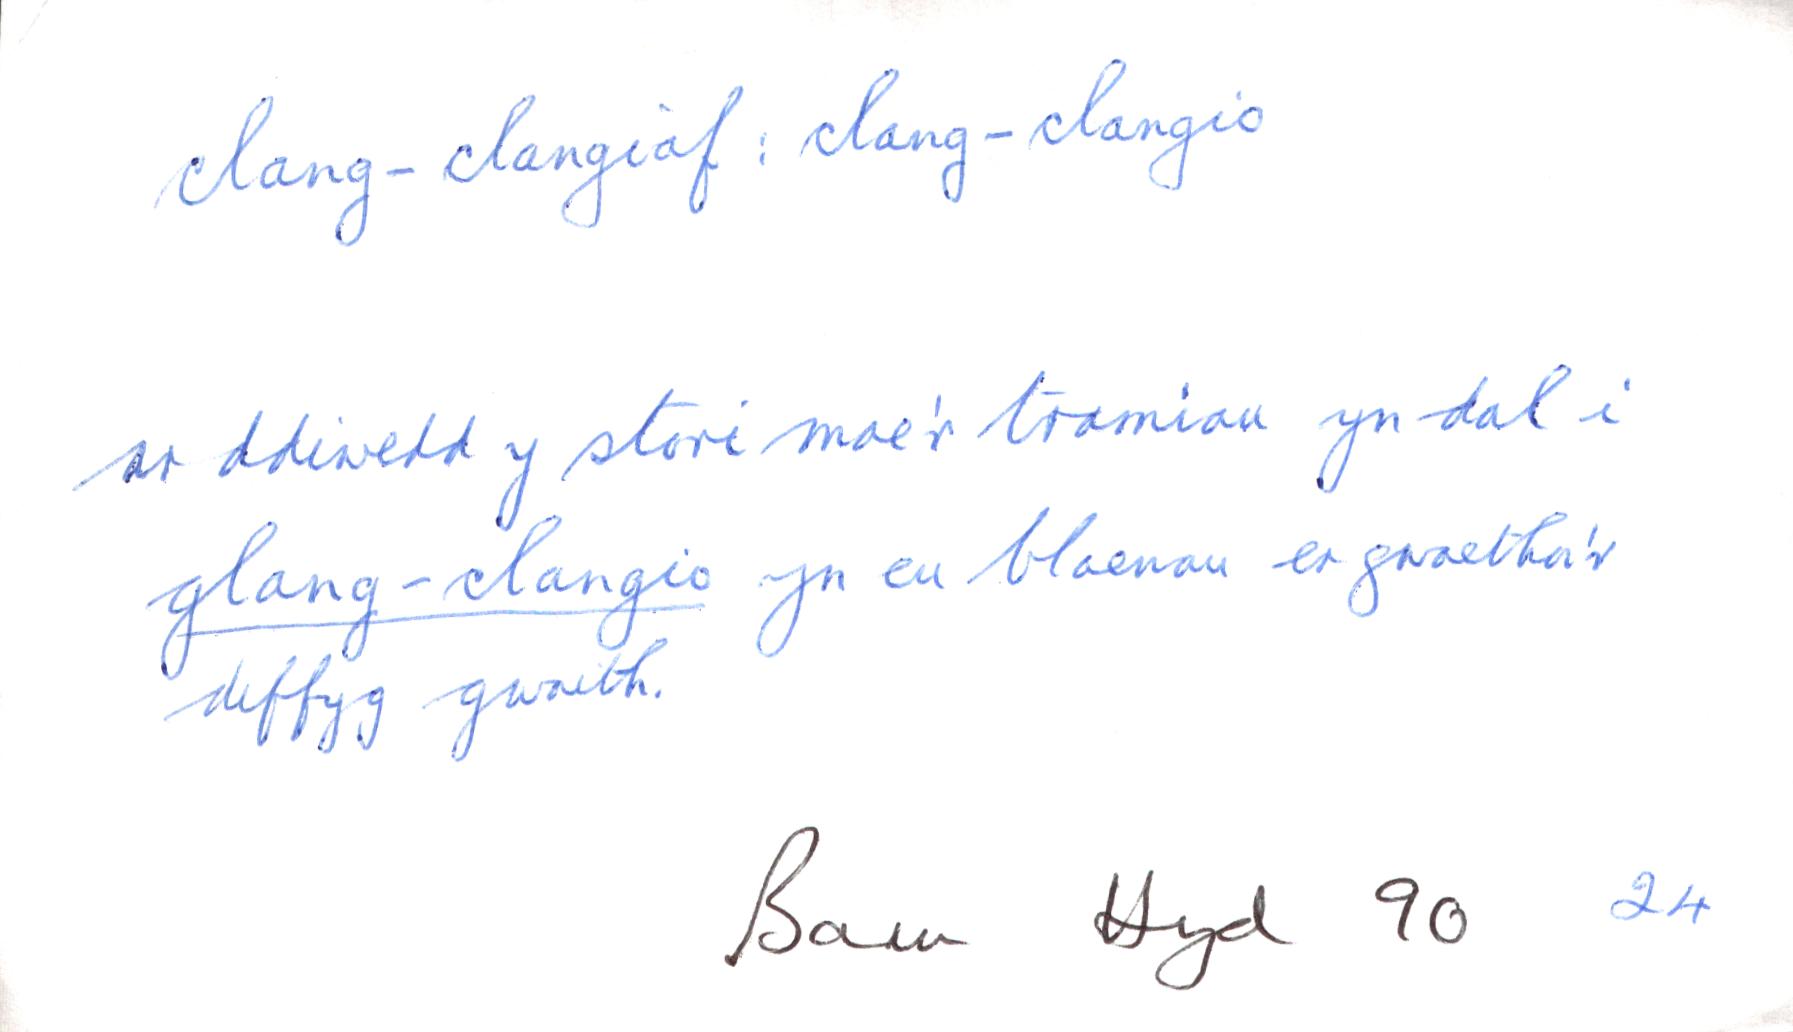 clang-clangiaf: clang-clangio
ar ddiwedd y stori mae'r tramiau yn dal i
glang-clangio yn eu blaenau er gwaetha'r
diffyg gwaith.
Barn Hyd 90 24